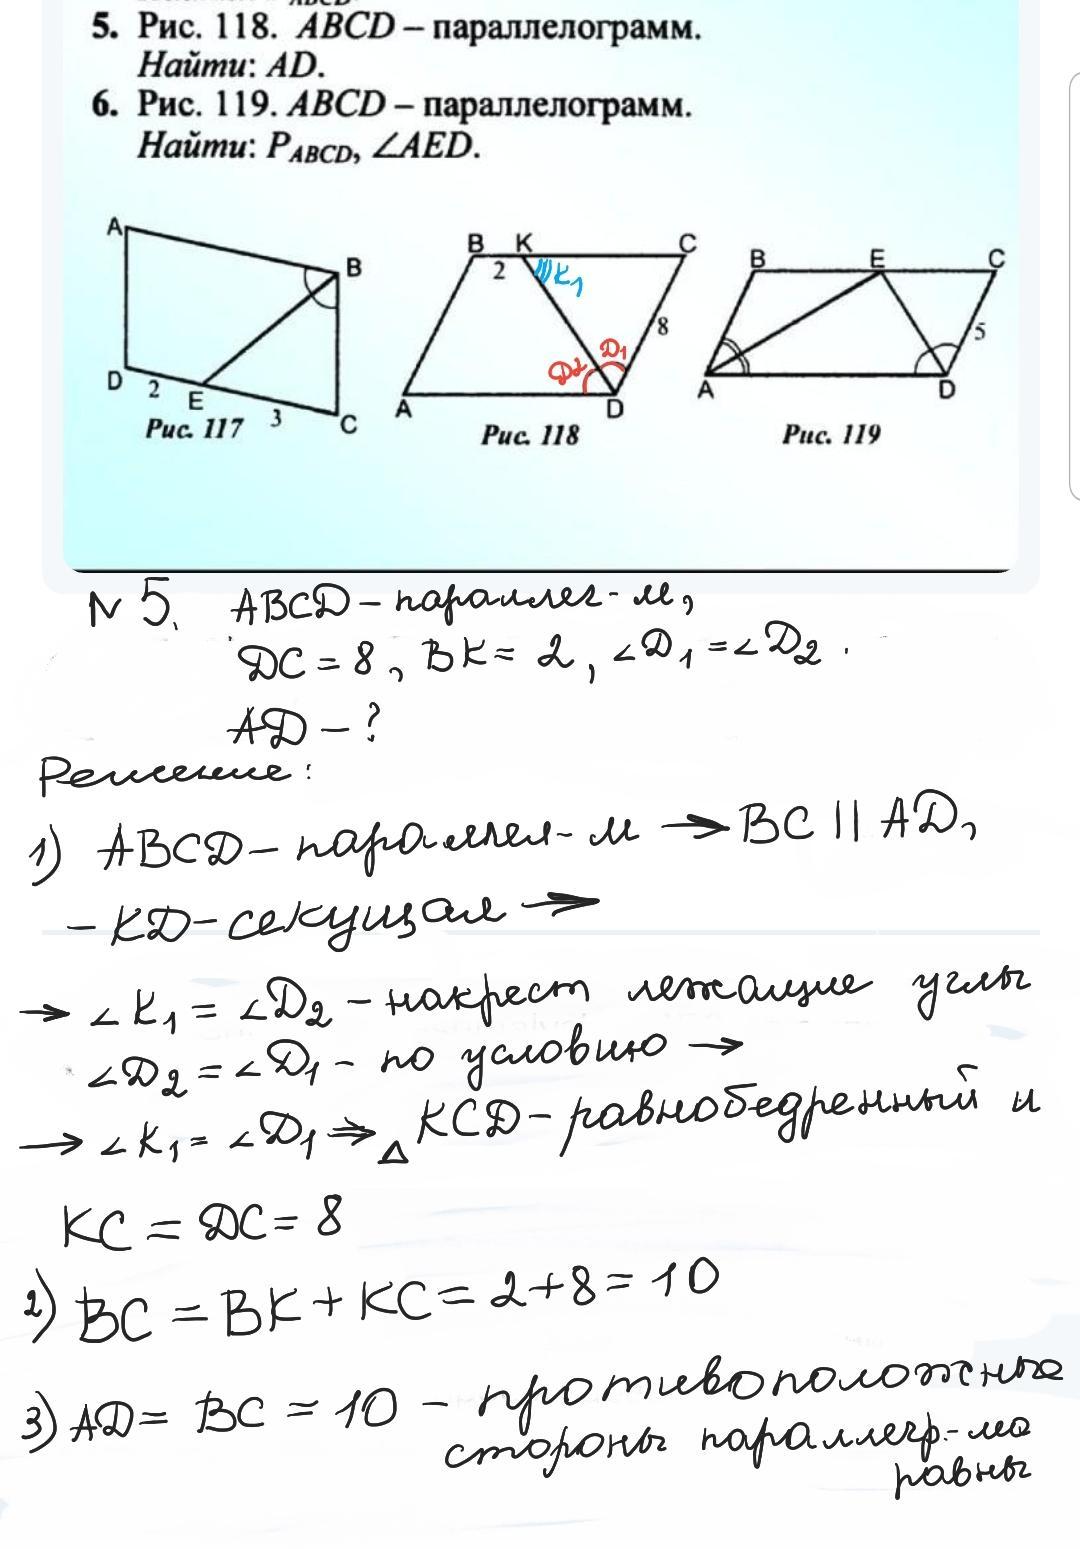 5. Рис. 118. ABCD – параллелограмм.
Найти: AD.
6. Рис. 119. ABCD – параллелограмм.
Найти: P_ABCD, ∠AED.
A B D 2 E 3 C
Рис. 117
B K C 2 K₁ 8 D₂ D₁ A D
Рис. 118
B E C 5 A D
Рис. 119
N 5. ABCD – параллел-м,
DC = 8, BK = 2, ∠D₁ = ∠D₂.
AD – ?
Решение:
1) ABCD – параллел-м → BC || AD,
– KD – секущая →
→ ∠K₁ = ∠D₂ – накрест лежащие углы
∠D₂ = ∠D₁ – по условию →
→ ∠K₁ = ∠D₁ ⇒ △KCD – равнобедренный и
KC = DC = 8
2) BC = BK + KC = 2+8 = 10
3) AD = BC = 10 – противоположные
стороны параллегр-ма
равны